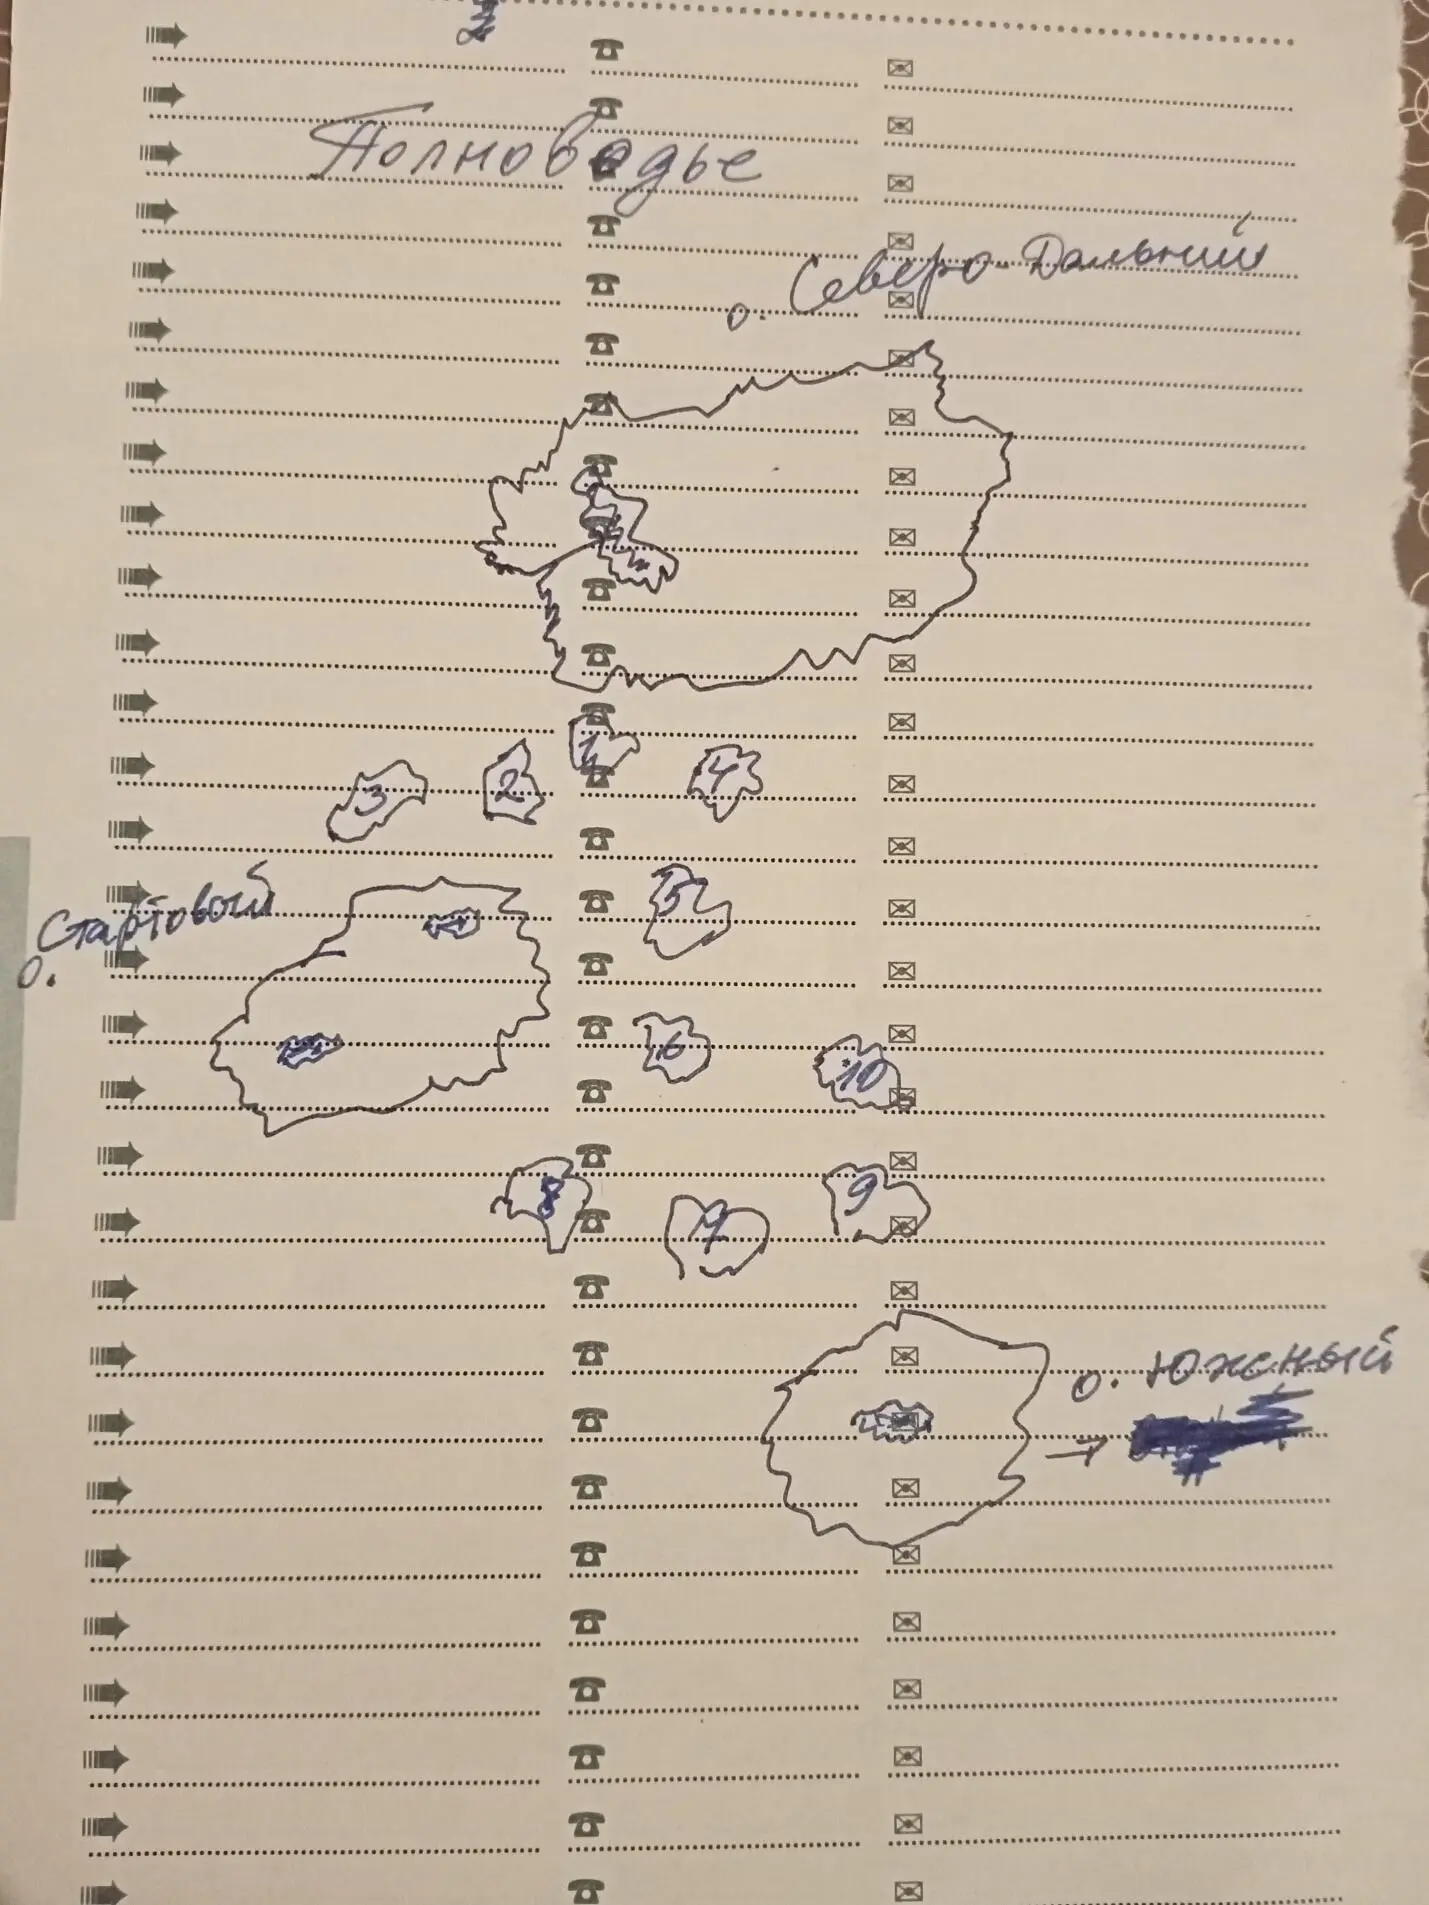 Полноводье
о. Северо-Дальний
1
2
3
4
о. Стартовый
5
6
10
8
7
9
о. Южный
→